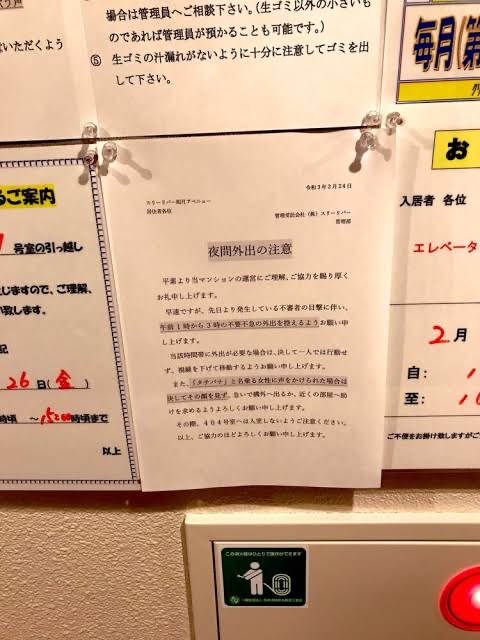 場合は管理員へご相談下さい。(生ゴミ以外の小さいも
のであれば管理員が預かることも可能です。)
⑤ 生ゴミの汁漏れがないように十分に注意してゴミを出
して下さい。
はいただくよう
毎月(第
るご案内
号室の引っ越し
じますので、ご理解、
い致します。
記
26日(金)
時頃 ~15:00時頃まで
以上
令和3年2月24日
スリーリバー如月アベニュー
居住者各位
管理受託会社(株)スリーリバー
管理部
夜間外出の注意
平素より当マンションの運営にご理解、ご協力を賜り厚く
お礼申し上げます。
早速ですが、先日より発生している不審者の目撃に伴い、
午前1時から3時の不要不急の外出を控えるようお願い申
し上げます。
当該時間帯に外出が必要な場合は、決して一人では行動せ
ず、視線を下げて移動するようお願い申し上げます。
また、「タチバナ」と名乗る女性に声をかけられた場合は
決してその顔を見ず、急いで構外へ出るか、近くの部屋へ助
けを求めるようよろしくお願い申し上げます。
その際、404号室へは入室しないようご注意ください。
以上、ご協力のほどよろしくお願い申し上げます。
お
入居者 各位
エレベータ
2月
自: 1
至: 1
ご不便をお掛け致しますがご
この消火栓はひとりで操作ができます